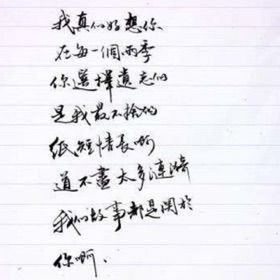 我真的好想你
在每一個雨季
你選擇遺忘的
是我最不捨的
紙短情長啊
道不盡太多漣漪
我的故事都是関於
你啊.